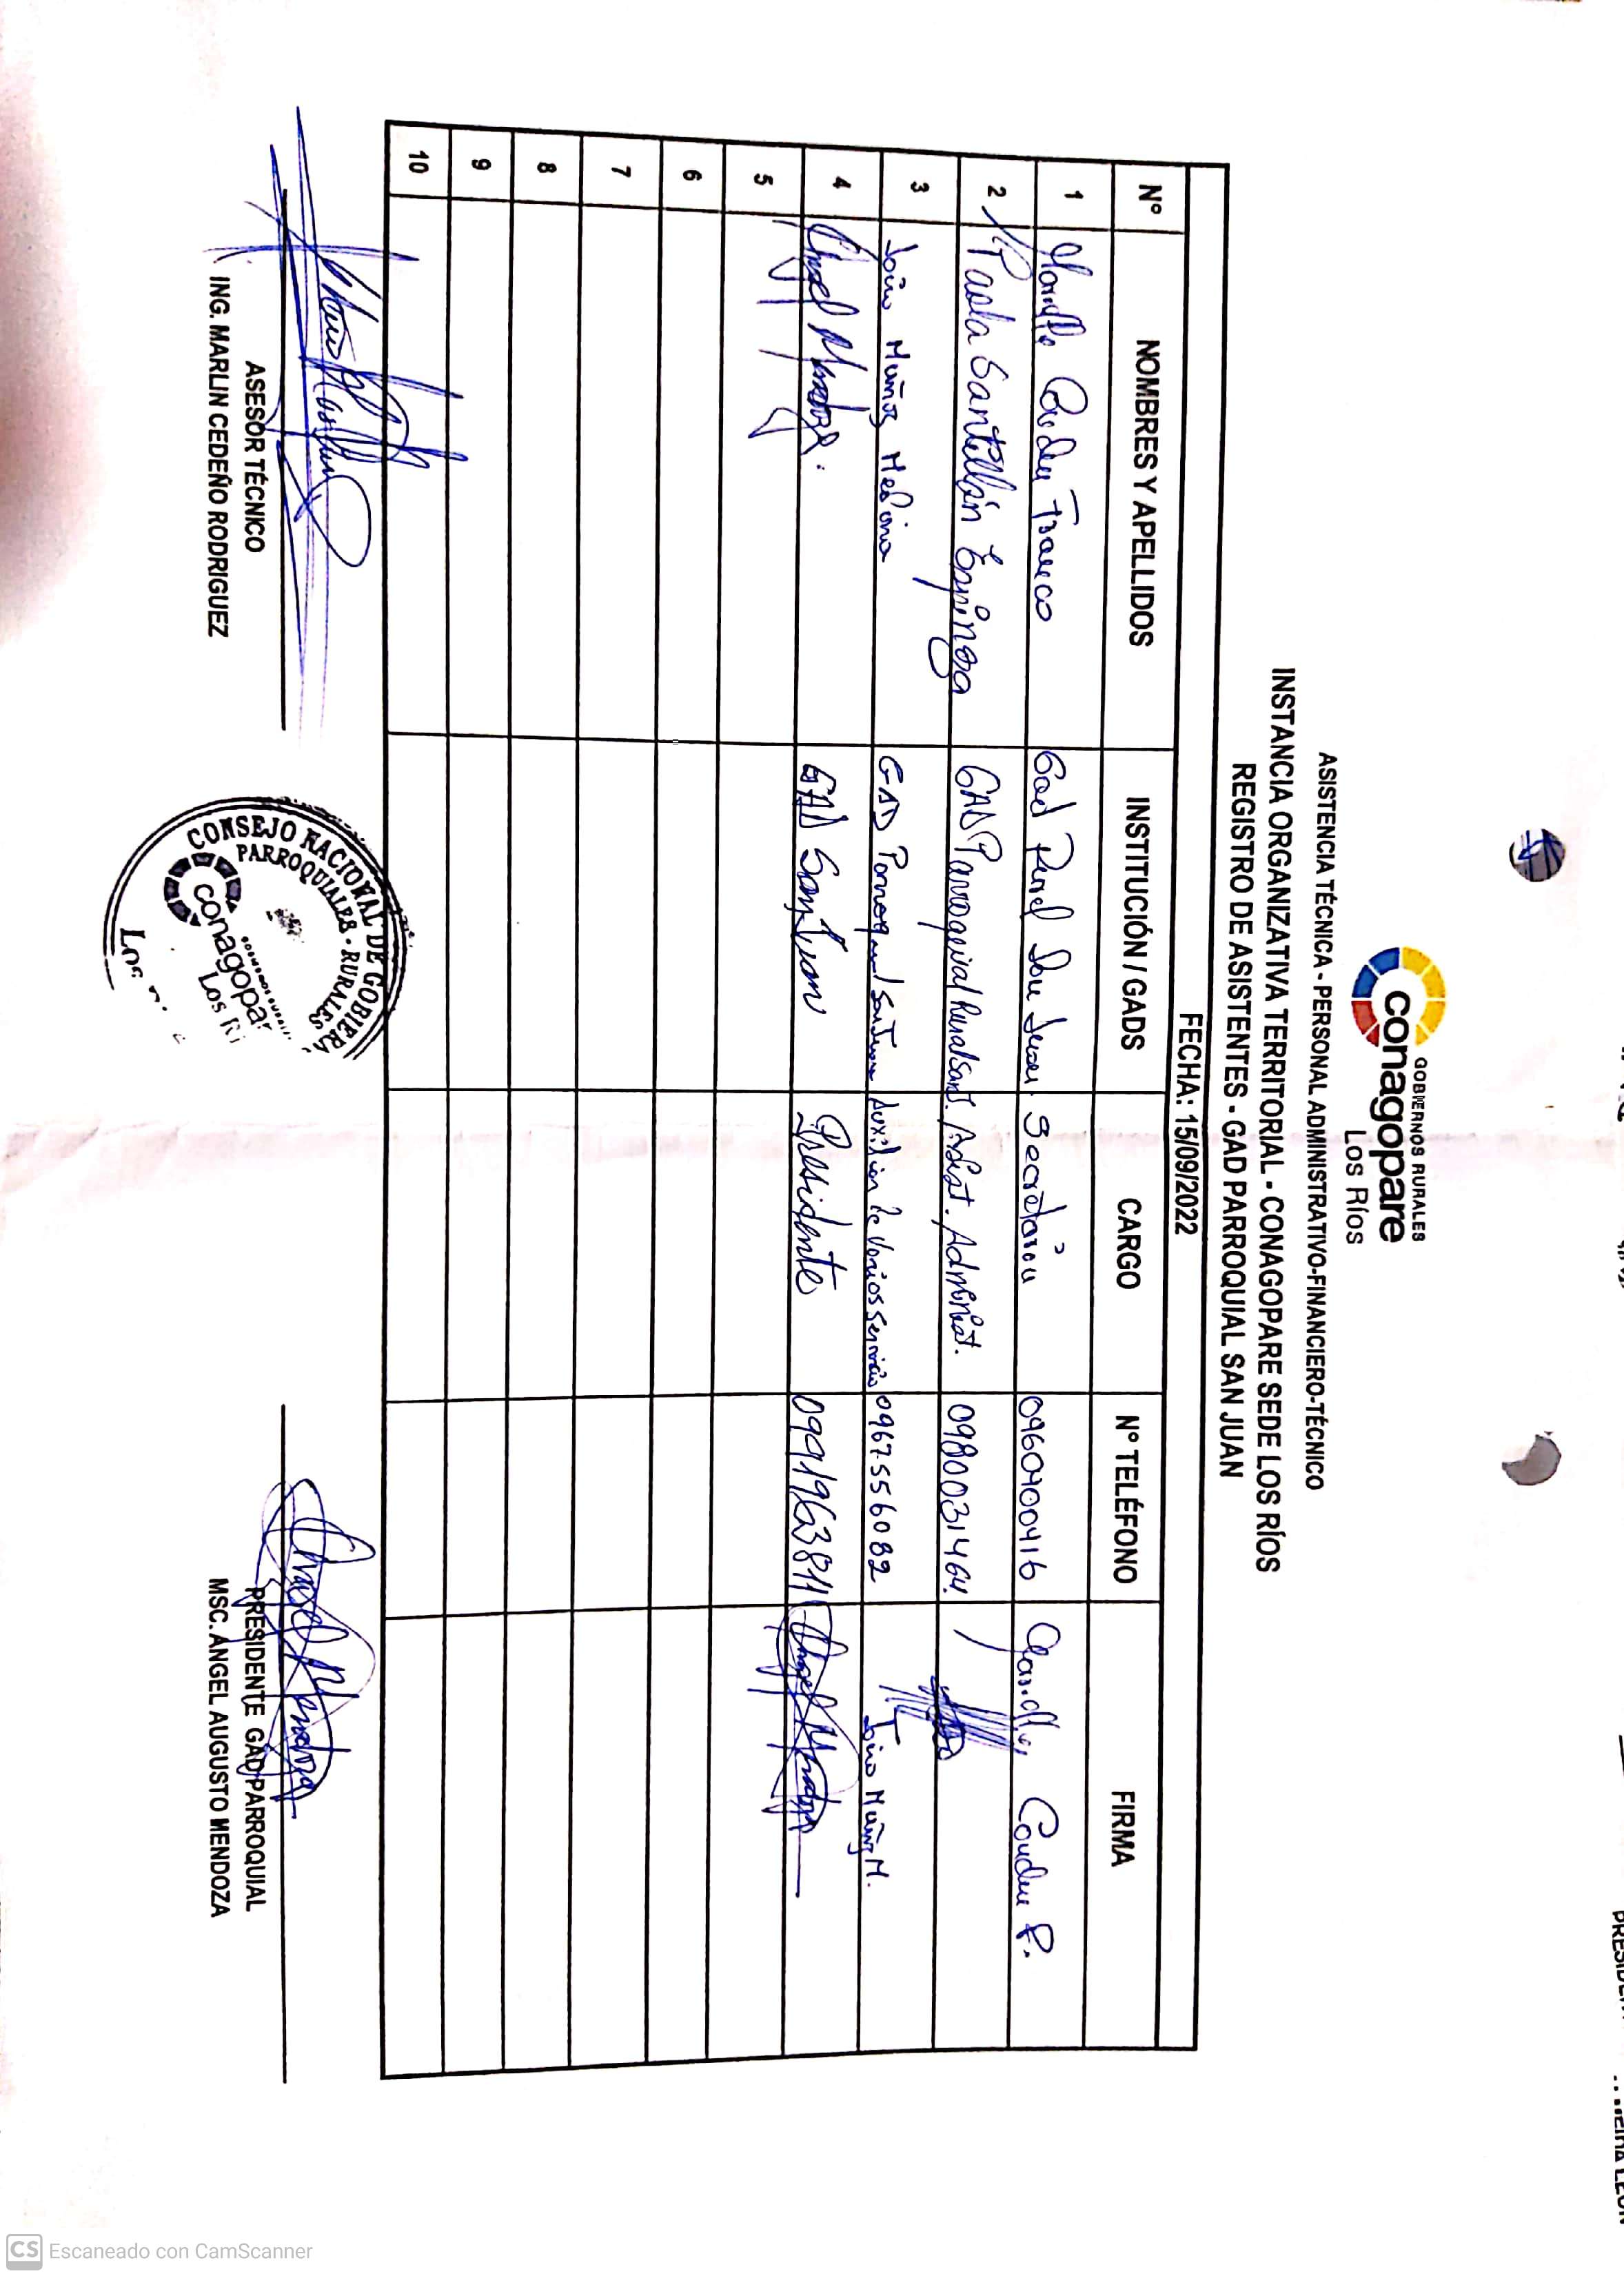 GOBIERNOS RURALES
conagopare
Los Ríos
ASISTENCIA TÉCNICA - PERSONAL ADMINISTRATIVO-FINANCIERO-TÉCNICO
INSTANCIA ORGANIZATIVA TERRITORIAL - CONAGOPARE SEDE LOS RÍOS
REGISTRO DE ASISTENTES - GAD PARROQUIAL SAN JUAN
FECHA: 15/09/2022
N° NOMBRES Y APELLIDOS INSTITUCIÓN / GADS CARGO N° TELÉFONO FIRMA
1 Franco Gad San Juan. Secretaria 0960400416
2 Paola Santillán Espinoza GAD Parroquial Rural San J. Asist. Administ. 0980031464.
3 Muñoz Medina GAD Parroquial San Juan Auxiliar de Varios Servicios 0967556082 Muñoz M.
4 Angel Mendoza. GAD San Juan Presidente 0991963811 Angel Mendoza
5
6
7
8
9
10
ASESOR TÉCNICO
ING. MARLIN CEDEÑO RODRIGUEZ
CONSEJO NACIONAL DE GOBIER
PARROQUIALES - RURALES
conagopar
Los Rí
Los
Angel Mendoza
PRESIDENTE GAD PARROQUIAL
MSC. ÁNGEL AUGUSTO MENDOZA
CS Escaneado con CamScanner